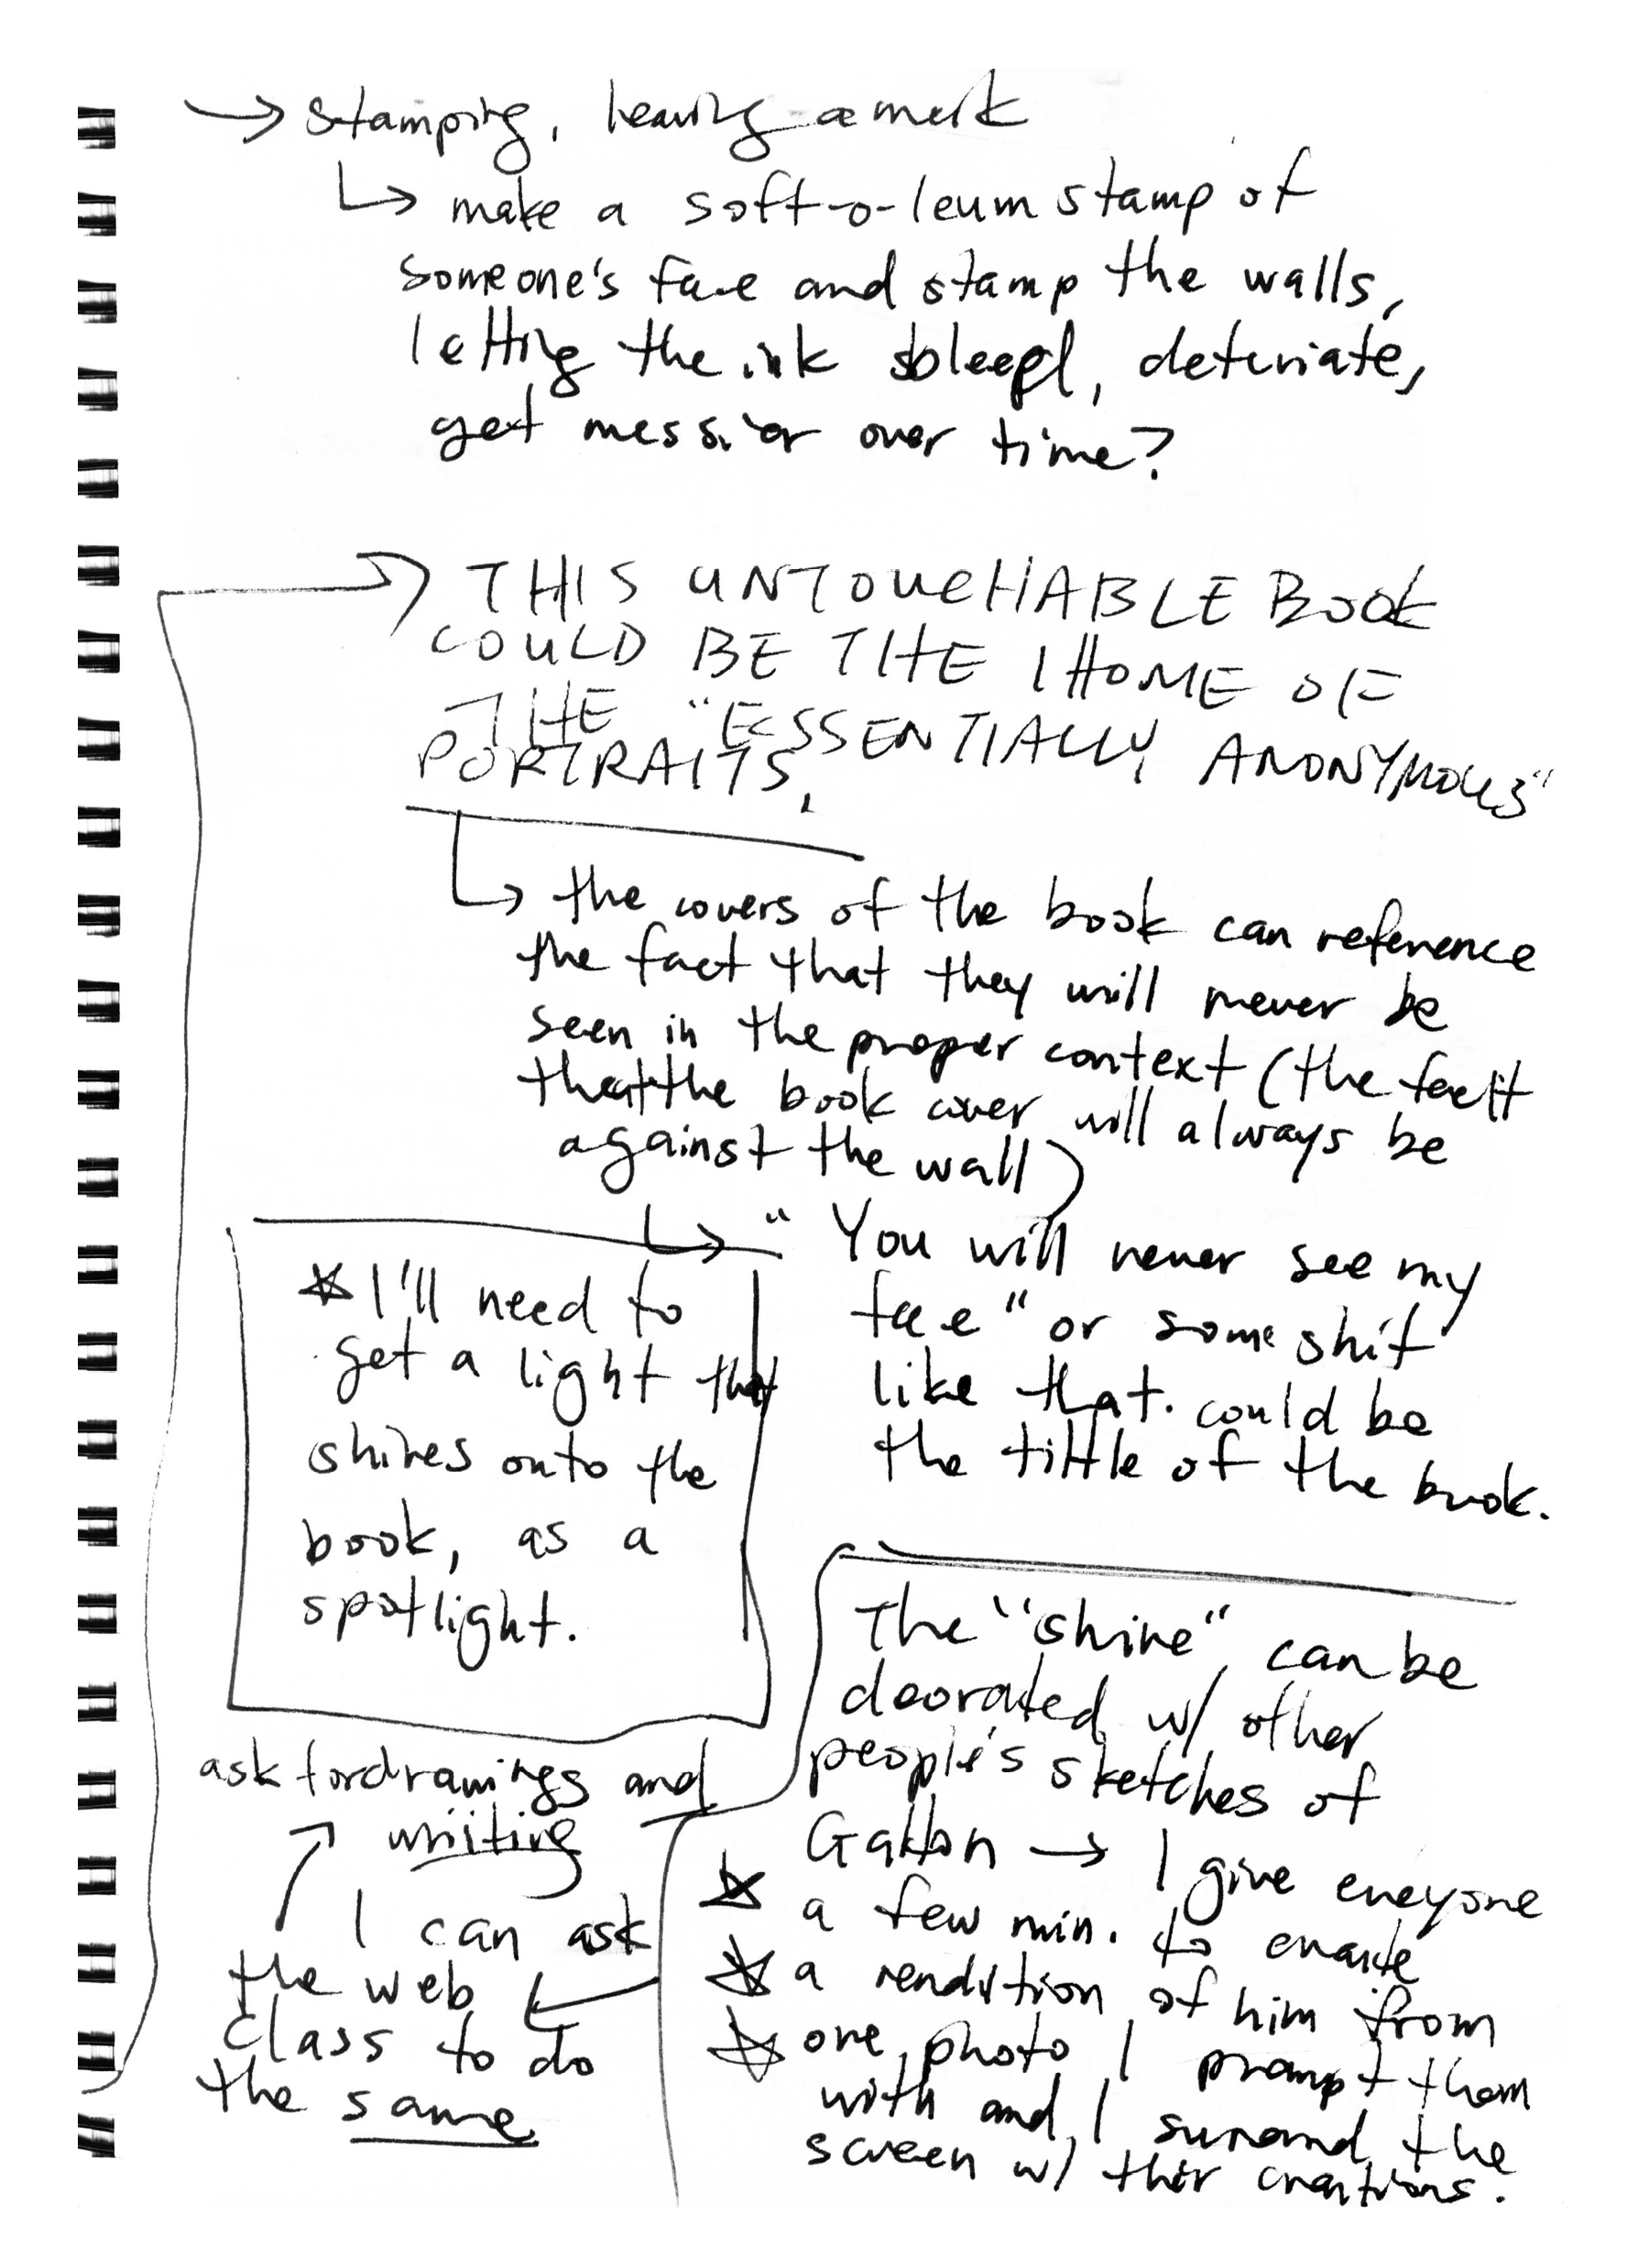 → stamping, leaving a mark
↳ make a soft-o-leum stamp of
someone's face and stamp the walls,
letting the ink bleed, deteriate,
get messier over time?
→ THIS UNTOUCHABLE BOOK
COULD BE THE HOME OF
THE "ESSENTIALLY ANONYMOUS"
PORTRAITS.
↳ the covers of the book can reference
the fact that they will never be
seen in the proper context (the fact
that the book cover will always be
against the wall)
↳ "You will never see my
face" or some shit
like that. could be
the tittle of the book.
☆ I'll need to
get a light that
shines onto the
book, as a
spotlight.
The "shrine" can be
decorated w/ other
people's sketches of
Galton → I give everyone
☆ a few min. to create
☆ a rendition of him from
☆ one photo I prompt them
with and I surround the
screen w/ their creations.
ask for drawings and
writing
I can ask
the web
class to do
the same